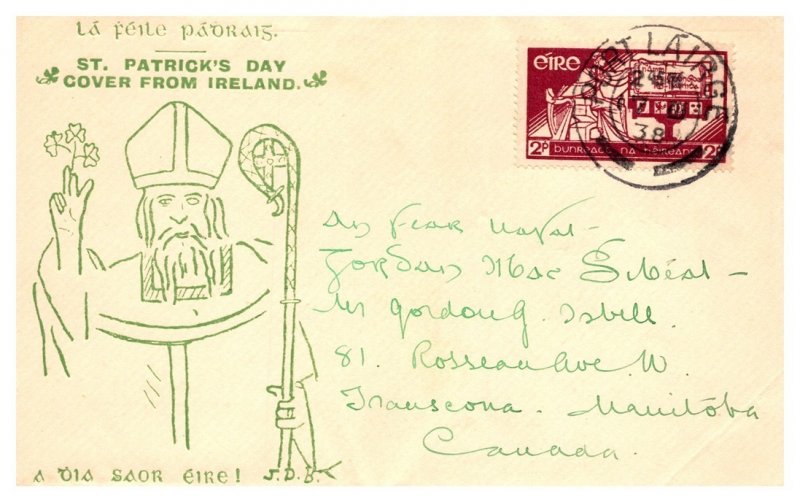 Lá Féile Pádraig.
ST. PATRICK'S DAY
COVER FROM IRELAND.
éire
PORT LÁIRGE
38
2p bunreacht na héireann 2p
An Fear Uasal
Gordan Mac
Mr Gordon G. Isbell.
81. Rosseau Ave W.
Transcona. Manitoba
Canada.
A Dia saor éire! J.D.B.